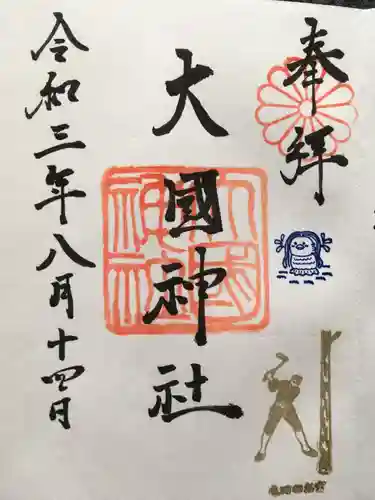 奉拝
大國神社
令和三年八月十四日